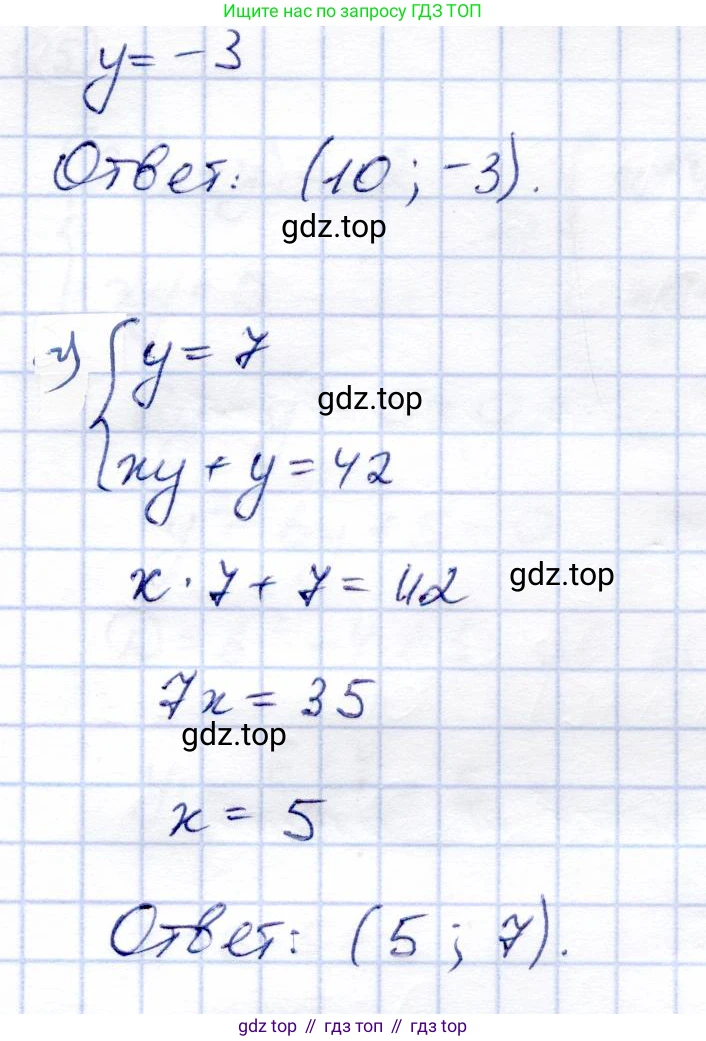 Ищите нас по запросу ГДЗ ТОП
y = -3
Ответ: (10 ; -3).
gdz.top
г) { y = 7
gdz.top
xy + y = 42
x · 7 + 7 = 42
gdz.top
7x = 35
gdz.top
x = 5
Ответ: (5 ; 7).
gdz.top // гдз топ // gdz.top